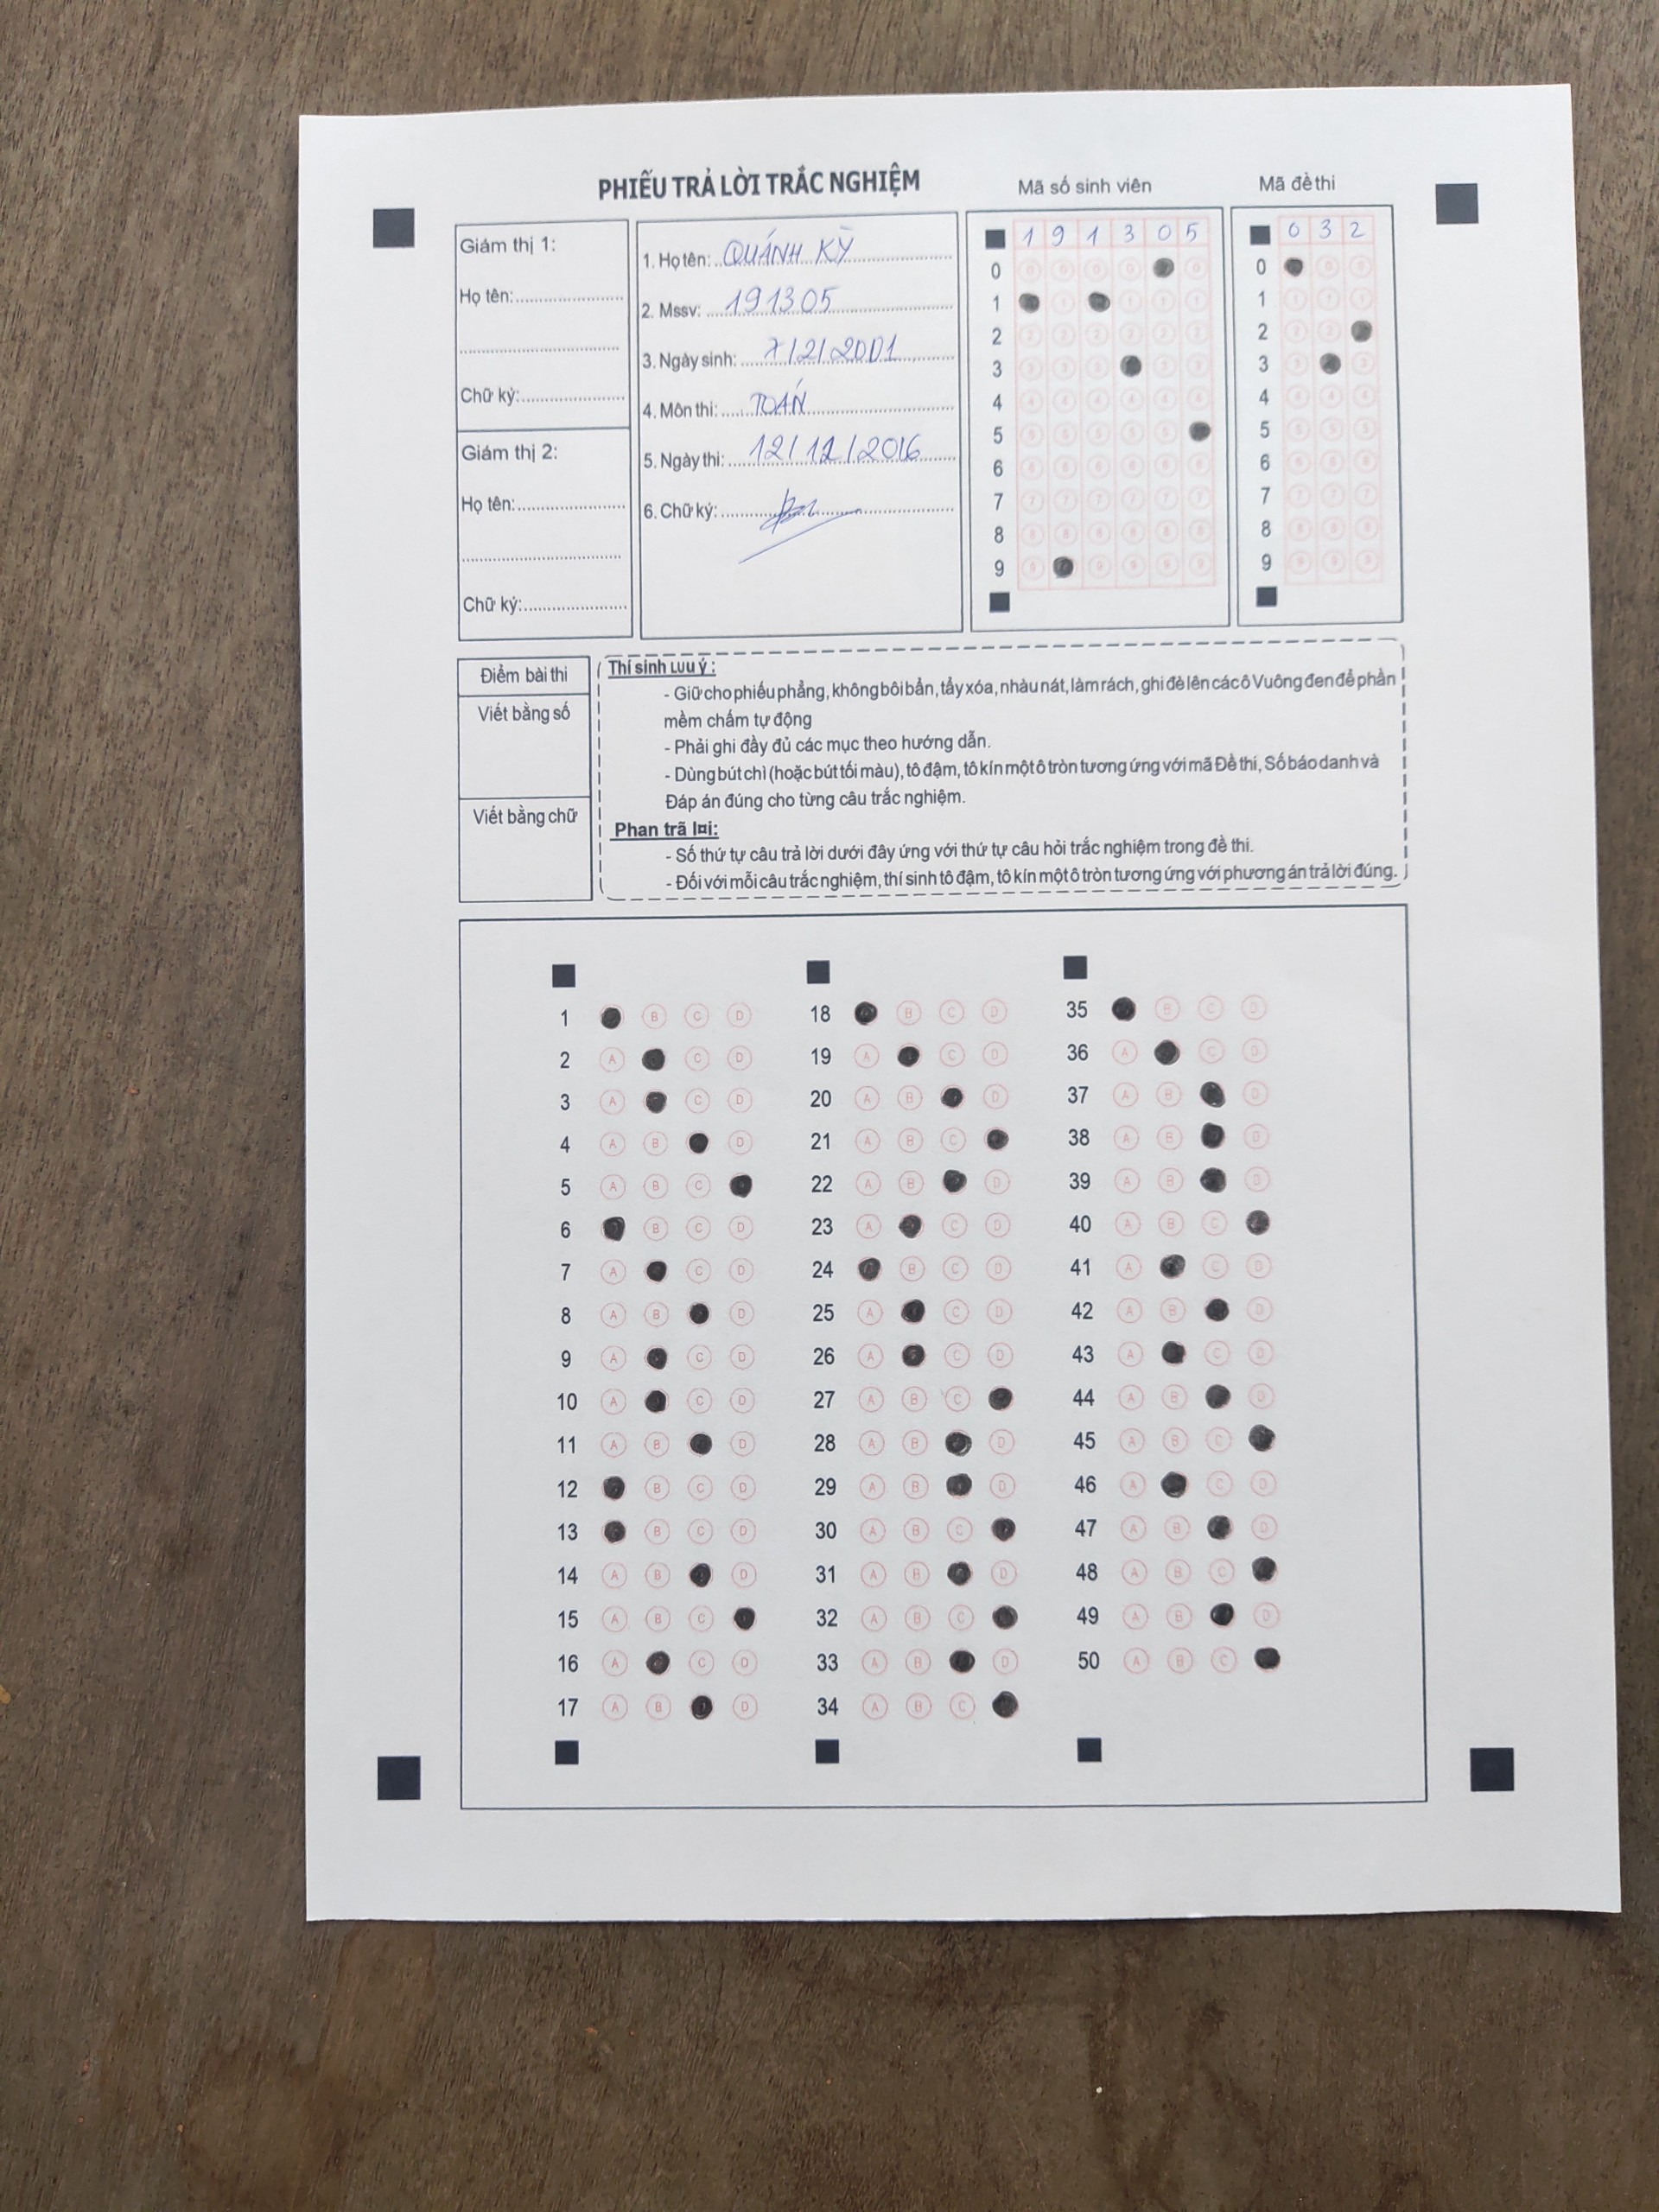 PHIẾU TRẢ LỜI TRẮC NGHIỆM
Mã số sinh viên
Mã đề thi
Giám thị 1:
Họ tên:
Chữ ký:
Giám thị 2:
Họ tên:
Chữ ký:
1. Họ tên: QUÁNH KỲ
2. Mssv: 191305
3. Ngày sinh: 7/2/2001
4. Môn thi: TOÁN
5. Ngày thi: 12/12/2016
6. Chữ ký:
1 9 1 3 0 5
0
1
2
3
4
5
6
7
8
9
0 3 2
0
1
2
3
4
5
6
7
8
9
Điểm bài thi
Viết bằng số
Viết bằng chữ
Thí sinh Lưu ý :
- Giữ cho phiếu phẳng, không bôi bẩn, tẩy xóa, nhàu nát, làm rách, ghi đè lên các ô Vuông đen để phần
mềm chấm tự động
- Phải ghi đầy đủ các mục theo hướng dẫn.
- Dùng bút chì (hoặc bút tối màu), tô đậm, tô kín một ô tròn tương ứng với mã Đề thi, Số báo danh và
Đáp án đúng cho từng câu trắc nghiệm.
Phan trã l¤i:
- Số thứ tự câu trả lời dưới đây ứng với thứ tự câu hỏi trắc nghiệm trong đề thi.
- Đối với mỗi câu trắc nghiệm, thí sinh tô đậm, tô kín một ô tròn tương ứng với phương án trả lời đúng.
1 B C D
2 A C D
3 A C D
4 A B D
5 A B C
6 B C D
7 A C D
8 A B D
9 A C D
10 A C D
11 A B D
12 B C D
13 B C D
14 A B D
15 A B C
16 A C D
17 A B D
18 B C D
19 A C D
20 A B D
21 A B C
22 A B D
23 A C D
24 B C D
25 A C D
26 A C D
27 A B C
28 A B D
29 A B D
30 A B C
31 A B D
32 A B C
33 A B D
34 A B C
35 B C D
36 A C D
37 A B D
38 A B D
39 A B D
40 A B C
41 A C D
42 A B D
43 A C D
44 A B D
45 A B C
46 A C D
47 A B D
48 A B C
49 A B D
50 A B C